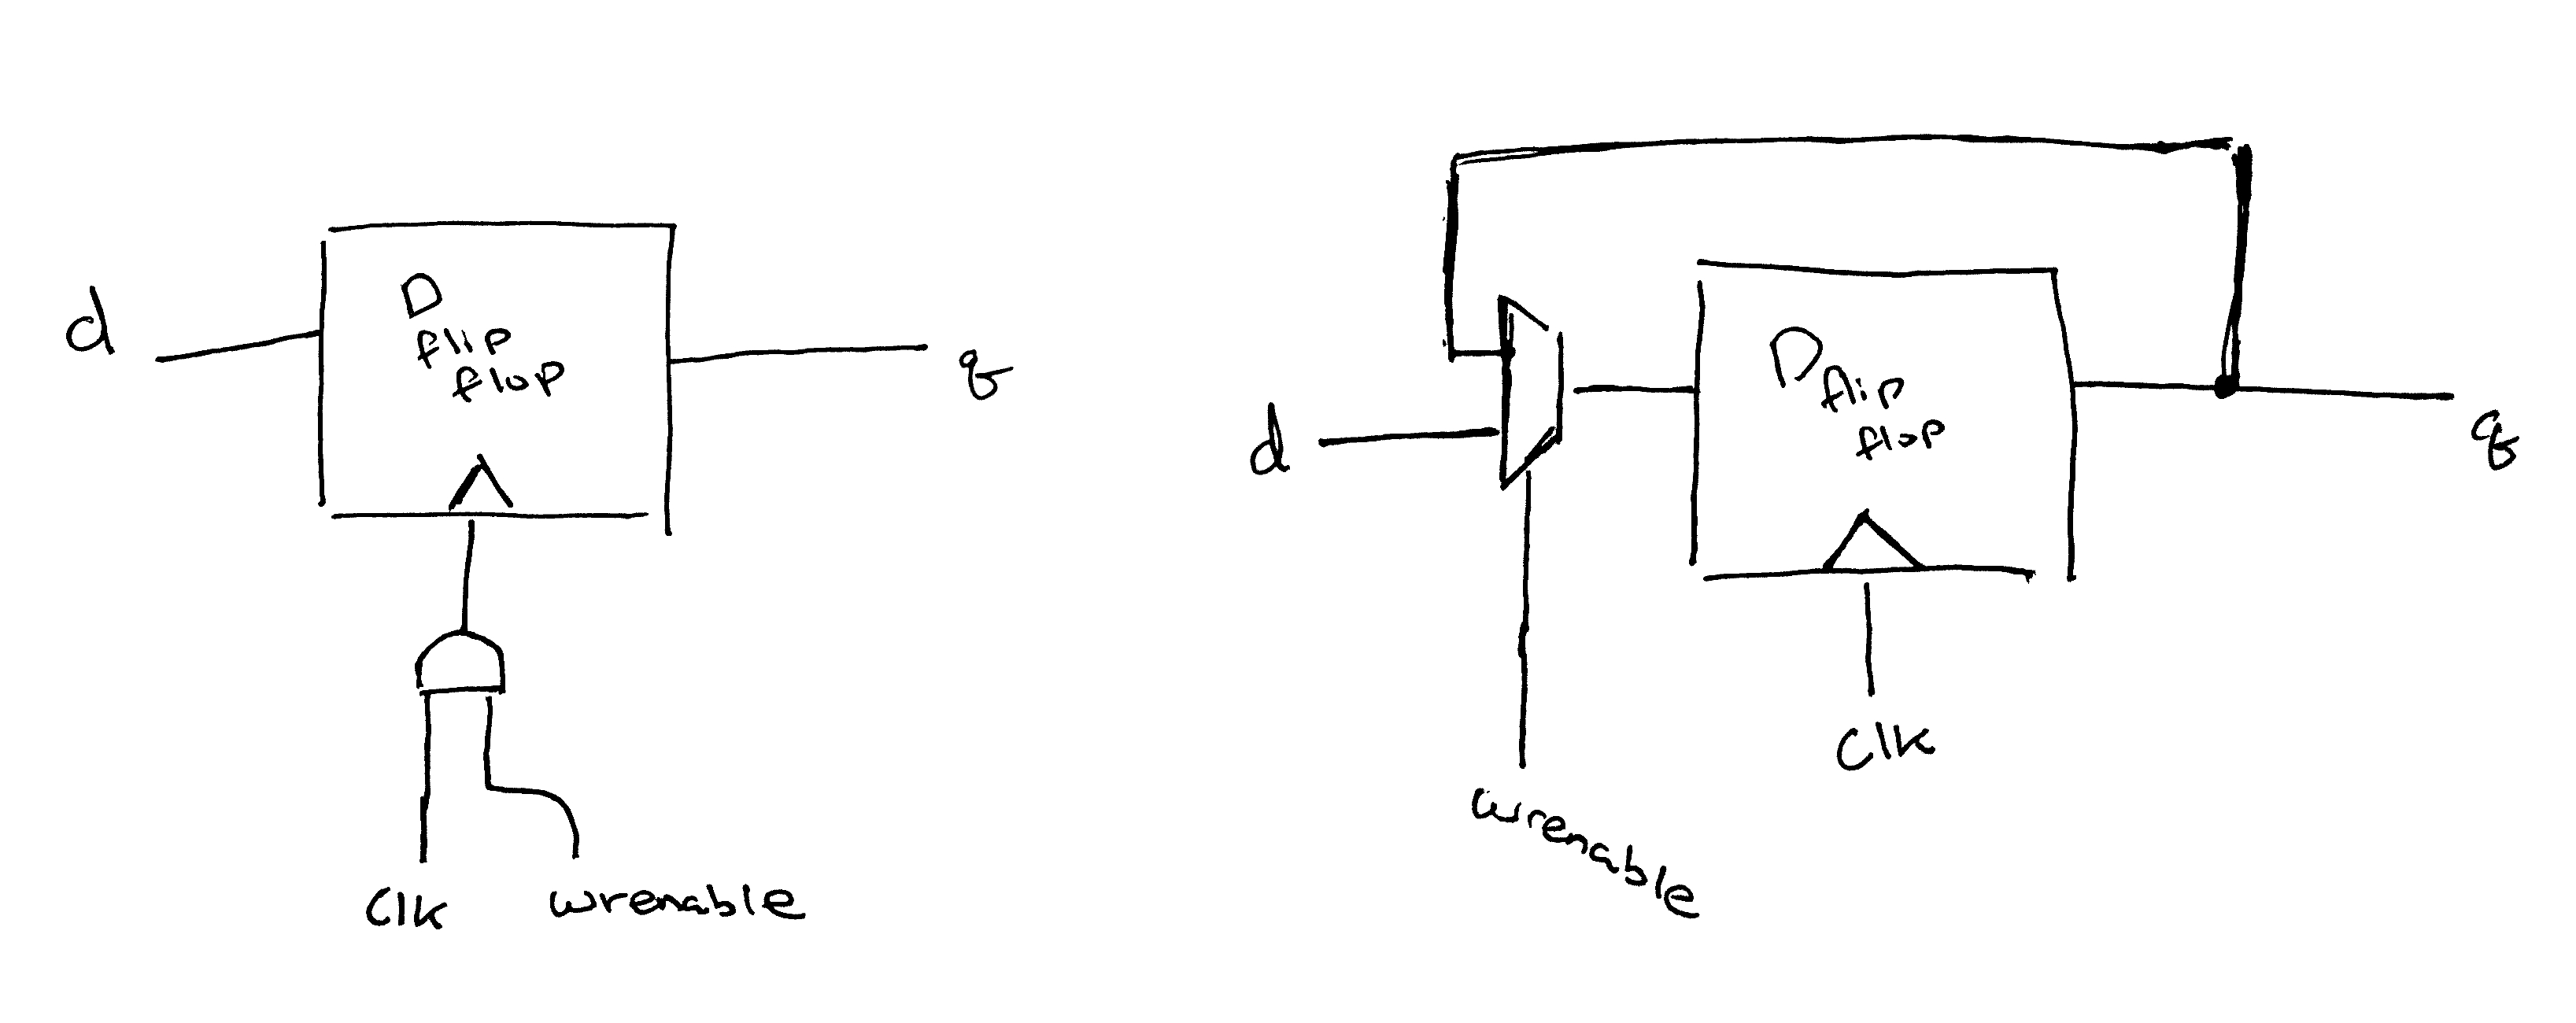 d
D
flip
flop
q
clk
wrenable
d
D
flip
flop
q
clk
wrenable